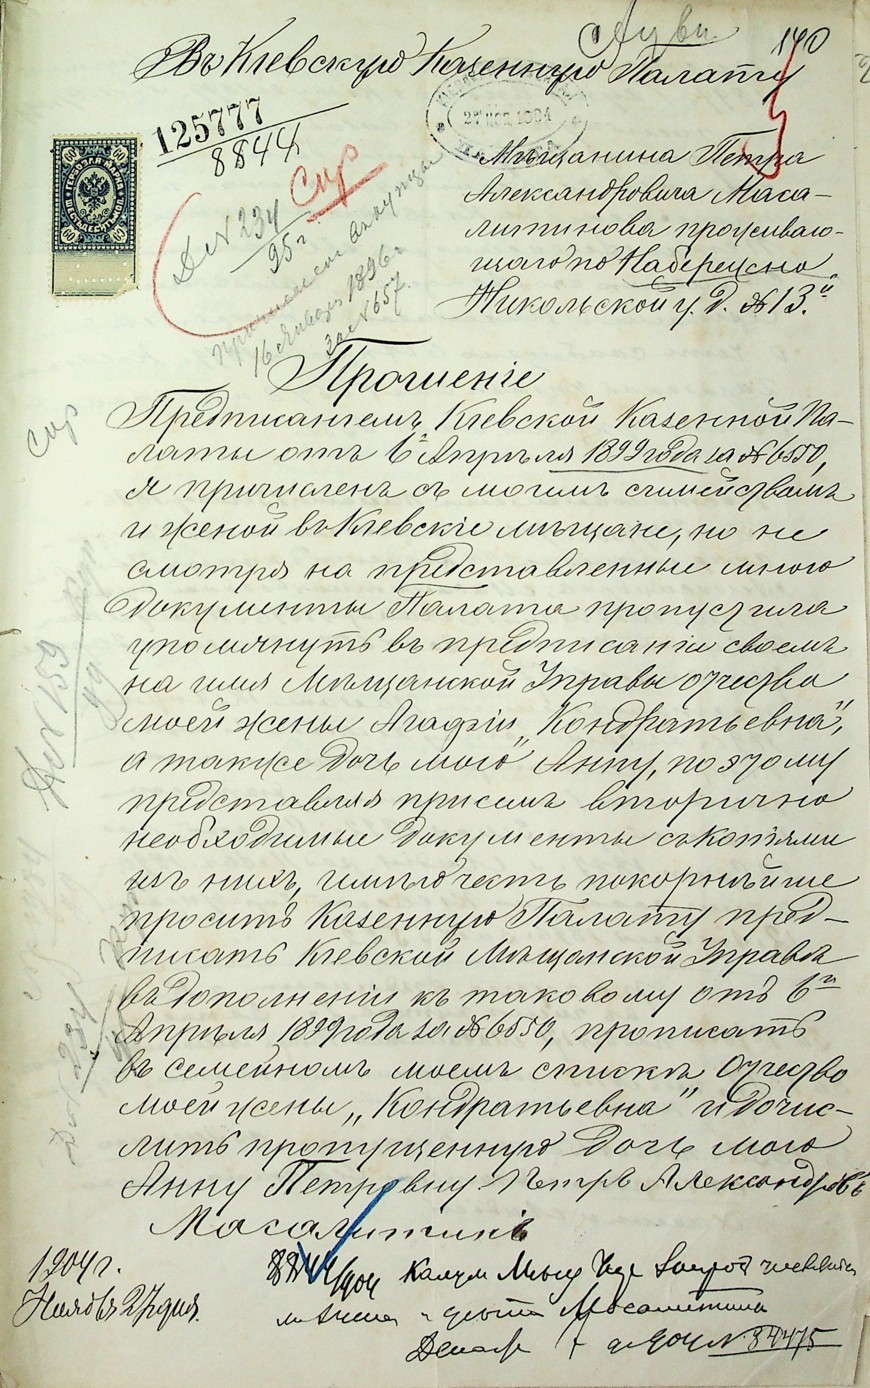 140
Въ Кіевскую Казенную Палату
125777
8844
27 НОЯ. 1904
60
60
60
60
Мѣщанина Петра
Александровича Маса-
литинова проживаю-
щаго по Набережно
Никольской у. д. № 13.й
Сир
Д № 234
95 г.
16 Января 1896 г.
за № 657.
Прошеніе
Предписаніемъ Кіевской Казенной Па-
латы отъ 6го Апрѣля 1899 года за № 6550,
я причисленъ съ моимъ съмействомъ
и женой въ Кіевскіе мѣщане, но не
смотря на представленные мною
документы Палата пропустила
упомянуть въ предписаніи своемъ
на имя Мѣщанской Управы отчество
моей жены Агафіи „Кондратьевна",
а также дочь мою Анну, поэтому
представляя присемъ вторично
необходимые документы съ копіями
изъ нихъ, имѣю честь покорнѣйше
просить Казенную Палату пред-
писать Кіевской Мѣщанской Управѣ
въ дополненіи къ таковому отъ 6го
Апрѣля 1899 года за № 6550, прописать
въ семейномъ моемъ спискѣ отчество
моей жены „Кондратьевна" и дочис-
лить пропущенную дочь мою
Анну Петровну. Пѣтръ Александровъ
Масалитинъ
1904 г.
Ноября 27 дня.
8844/904
№ 34475
Сир
Д № 159
99
Д № 234